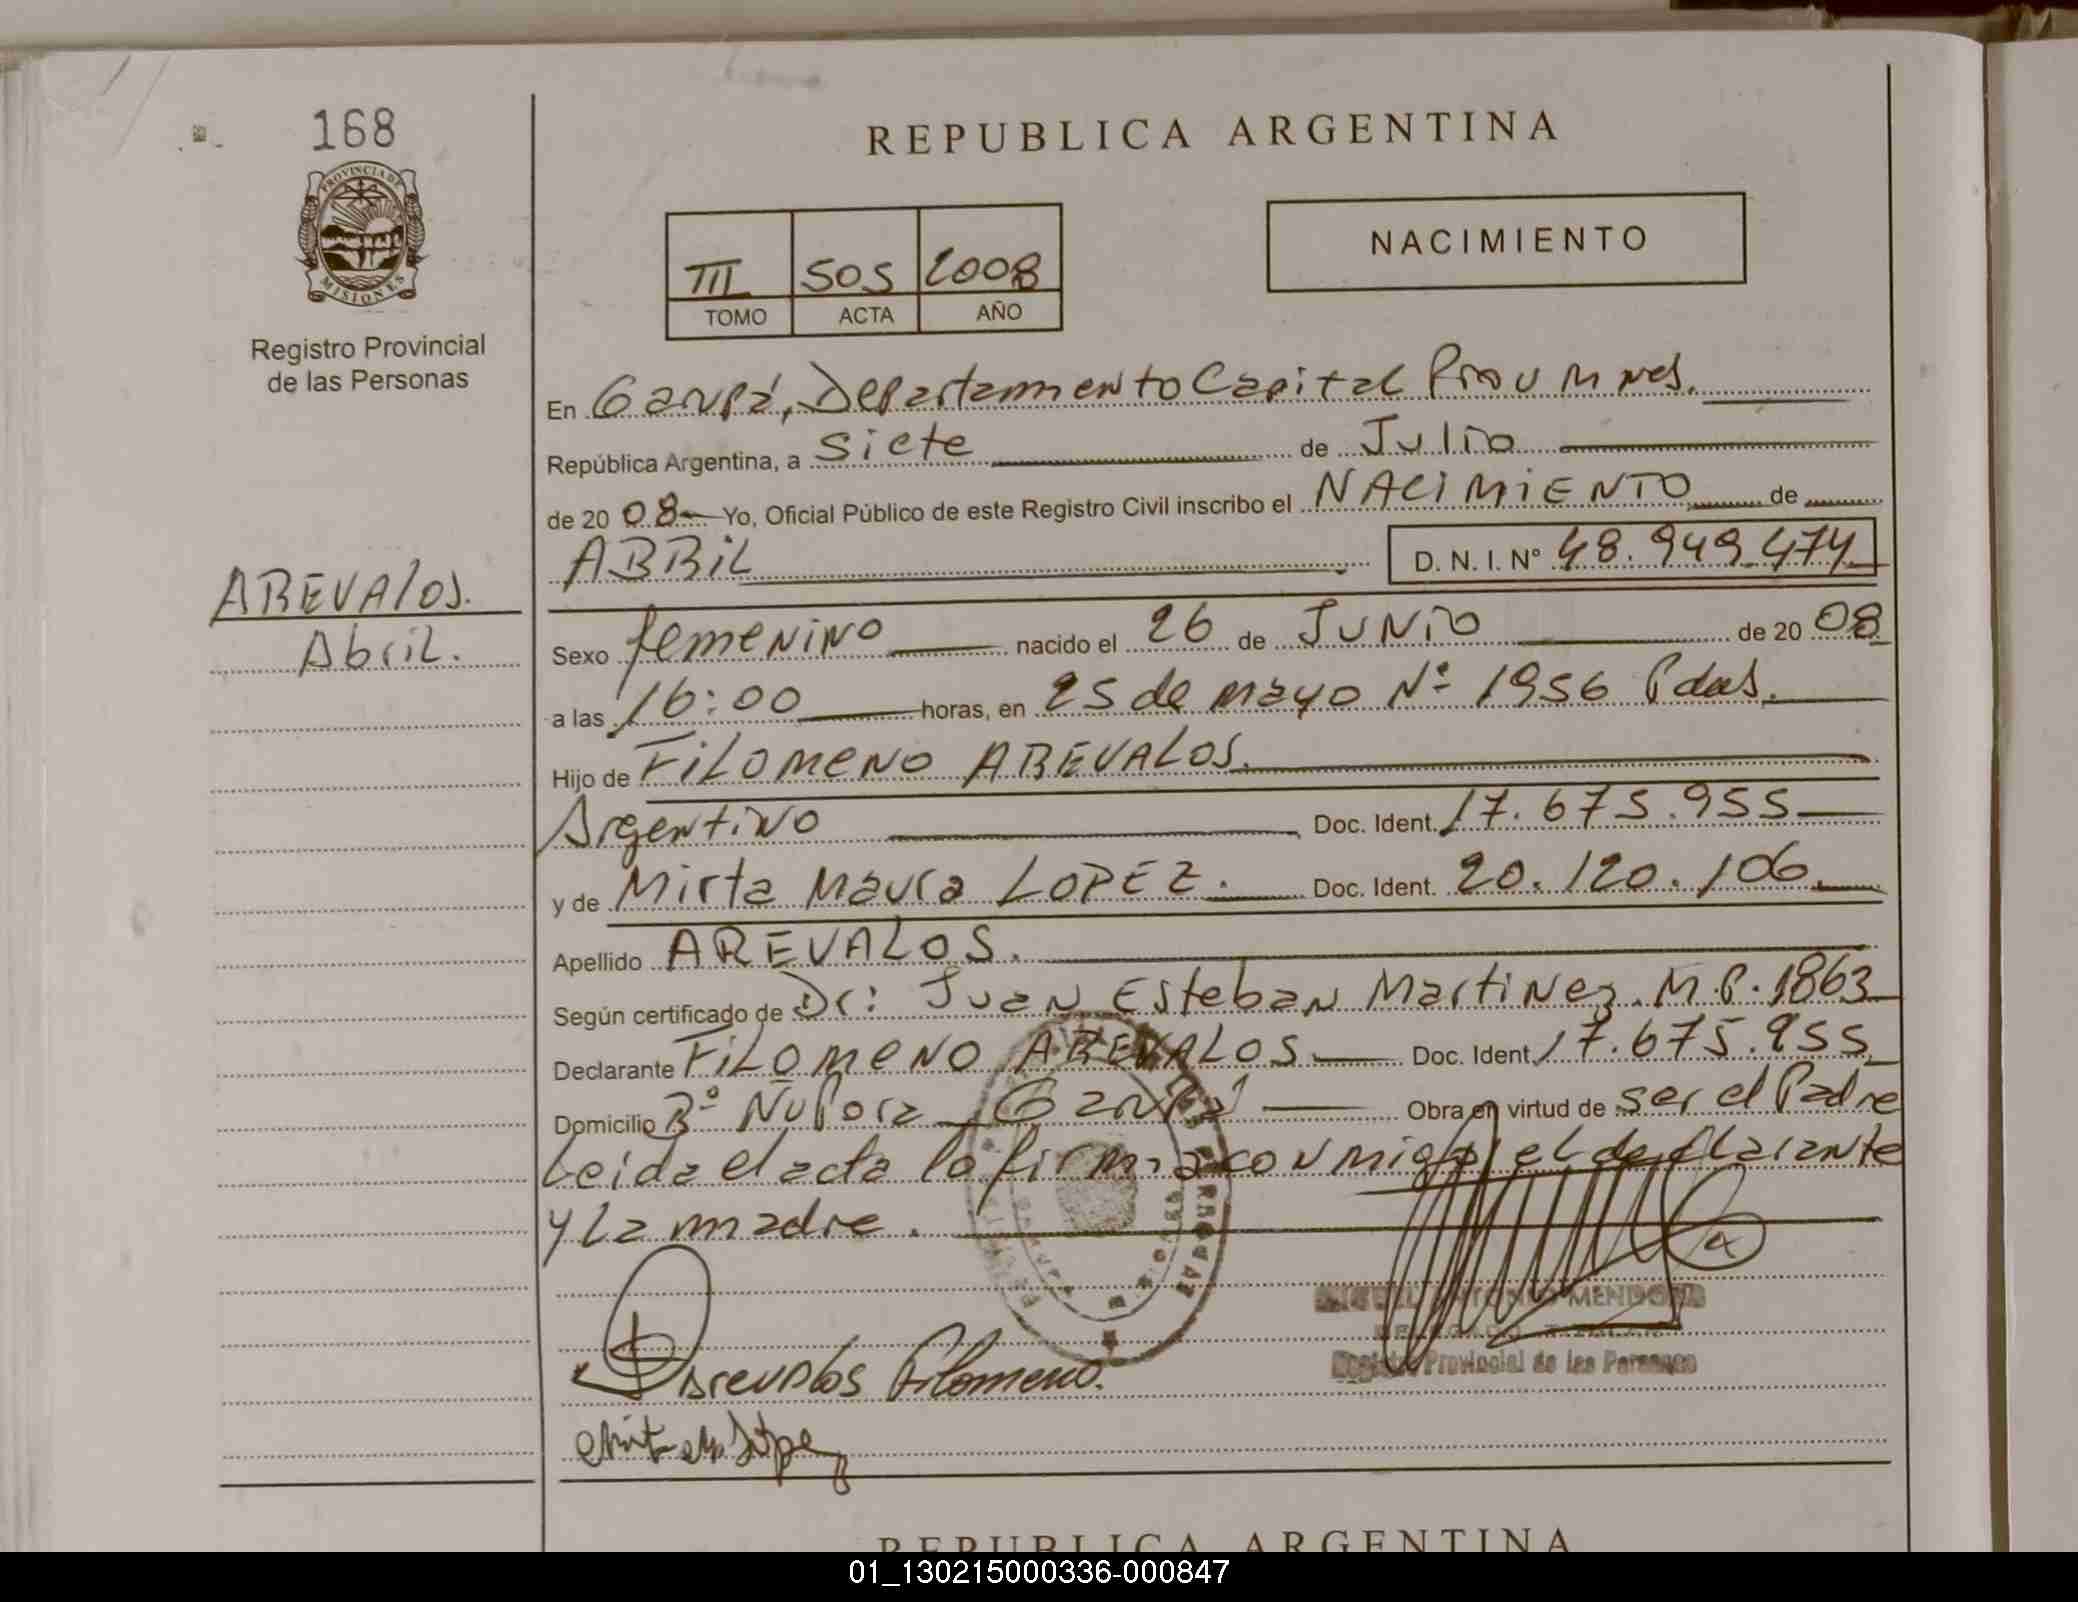 168
PROVINCIA DE
MISIONES
Registro Provincial
de las Personas
AREVALOS.
Abril.
REPUBLICA ARGENTINA
III 505 2008
TOMO ACTA AÑO
NACIMIENTO
En Garupá, Departamento Capital Prov Mnes.
República Argentina, a siete de Julio
de 20 08 Yo, Oficial Público de este Registro Civil inscribo el NACIMIENTO de
ABRIL D. N. I. Nº 48.949.474
Sexo femenino nacido el 26 de JUNIO de 20 08
a las 16:00 horas, en 25 de mayo Nº 1956 Pdas.
Hijo de FILOMENO AREVALOS.
Argentino Doc. Ident. 17.675.955
y de Mirta Maura LOPEZ. Doc. Ident. 20.120.106.
Apellido AREVALOS.
Según certificado de Dr: Juan Esteban Martinez. M.P. 1863
Declarante FILOMENO AREVALOS Doc. Ident. 17.675.955
Domicilio Bº Ñu Pora Garupá Obra en virtud de ser el Padre
Leida el acta la firma conmigo el declarante
y la madre.
MIGUEL ANTONIO MENDOZA
Registro Provincial de las Personas
Arevalos Filomeno.
REPUBLICA ARGENTINA
01_130215000336-000847